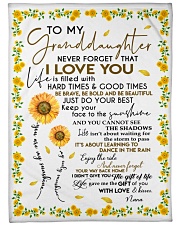 TO MY
Granddaughter
NEVER FORGET THAT
I LOVE YOU
Life is filled with
HARD TIMES & GOOD TIMES
BE BRAVE, BE BOLD AND BE BEAUTIFUL
JUST DO YOUR BEST
Keep your
face to the sunshine
AND YOU CANNOT SEE
THE SHADOWS
Life isn't about waiting for
the storm to pass
IT'S ABOUT LEARNING TO
DANCE IN THE RAIN
Enjoy the ride
And never forget
your way back home
I DIDN'T GIVE YOU The gift of life
Life gave me the GIFT OF YOU
WITH LOVE & kisses
Nana